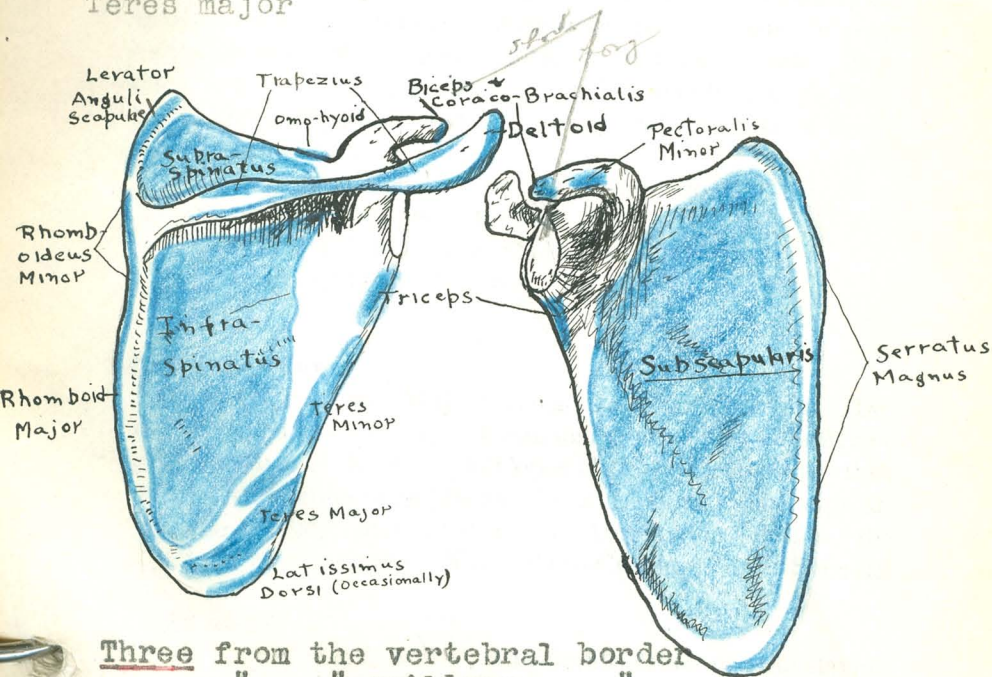 Teres major
short
long
Levator
Anguli
Scapulae
Trapezius
Omo-hyoid
Biceps +
Coraco-Brachialis
Deltoid
Pectoralis
Minor
Supra-
Spinatus
Rhomb-
oideus
Minor
Infra-
Spinatus
Triceps
Subscapularis
Serratus
Magnus
Rhomboid
Major
Teres
Minor
Teres Major
Latissimus
Dorsi (Occasionally)
Three from the vertebral border